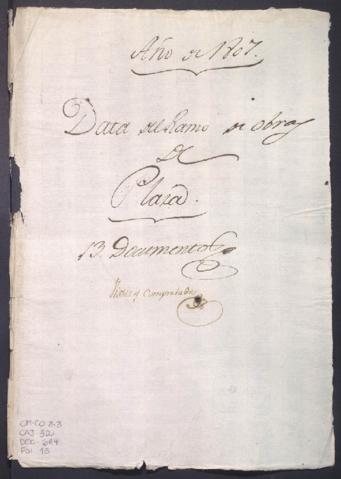 Año de 1807.
Data del Ramo de obras
De
Plaza.
13. Documentos
Vistos y Comprobados
CM-CO 8.3
CAJ-32
DEC-684
FOI-13